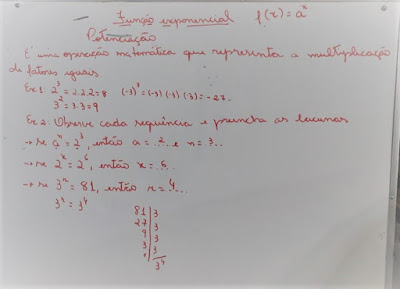 Função exponencial f(x)=aˣ
Potenciação
É uma operação matemática que representa a multiplicação
de fatores iguais
Ex 1: 2³=2.2.2=8 (-3)³=(-3).(-3).(-3)=-27.
3²=3.3=9
Ex 2: Observe cada sequência e preencha as lacunas
→ se aⁿ=2³, então a=..2.. e n=3..
→ se 2ˣ=2⁶, então x=..6..
→ se 3ˣ=81, então x=..4...
3ˣ=3⁴
81 | 3
27 | 3
9 | 3
3 | 3
3⁴